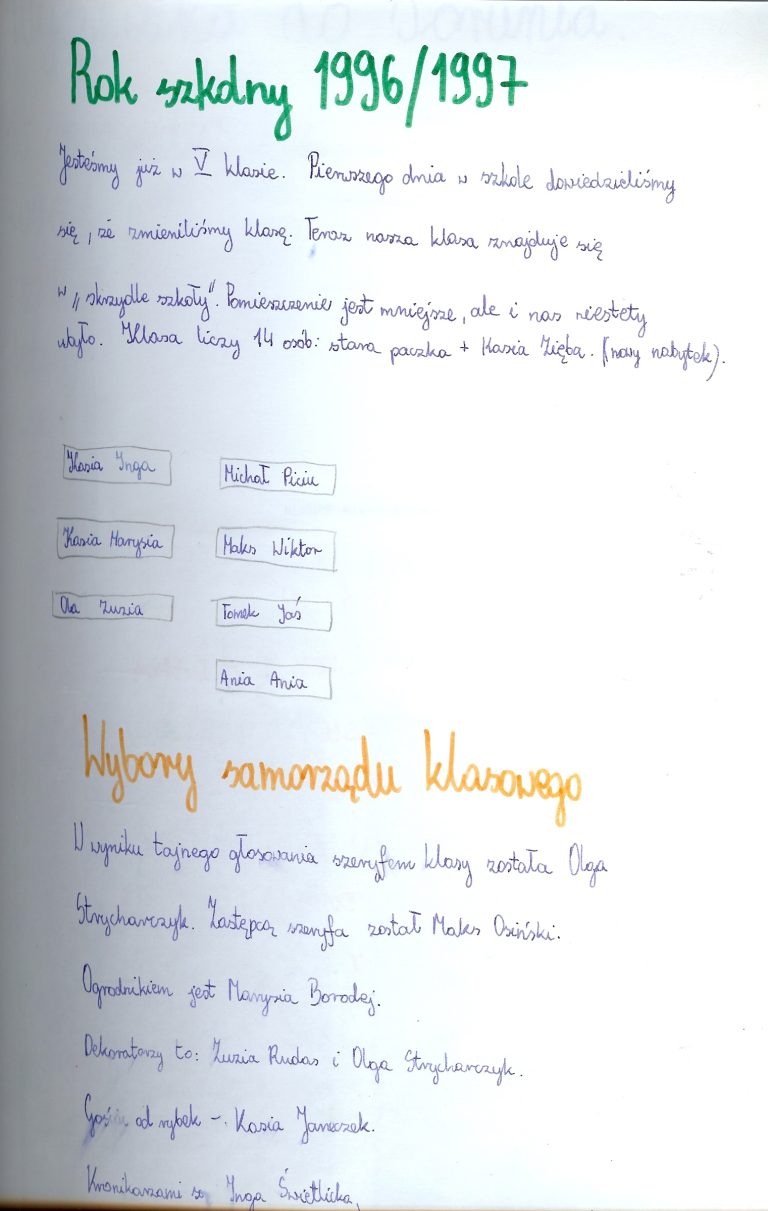 Rok szkolny 1996/1997
Jesteśmy już w V klasie. Pierwszego dnia w szkole dowiedzieliśmy
się, że zmieniliśmy klasę. Teraz nasza klasa znajduje się
w „skrzydle szkoły". Pomieszczenie jest mniejsze, ale i nas niestety
ubyło. Klasa liczy 14 osób: stara paczka + Kasia Zięba. (nowy nabytek).
Kasia Inga
Michał Piciu
Kasia Marysia
Maks Wiktor
Ola Zuzia
Tomek Jaś
Ania Ania
Wybory samorządu klasowego
W wyniku tajnego głosowania szeryfem klasy została Olga
Strycharczyk. Zastępcą szeryfa został Maks Osiński.
Ogrodnikiem jest Marysia Borodej.
Dekoratorzy to: Zuzia Rudas i Olga Strycharczyk.
Gość od rybek -. Kasia Janeczek.
Kronikarzami są Inga Świetlicka,